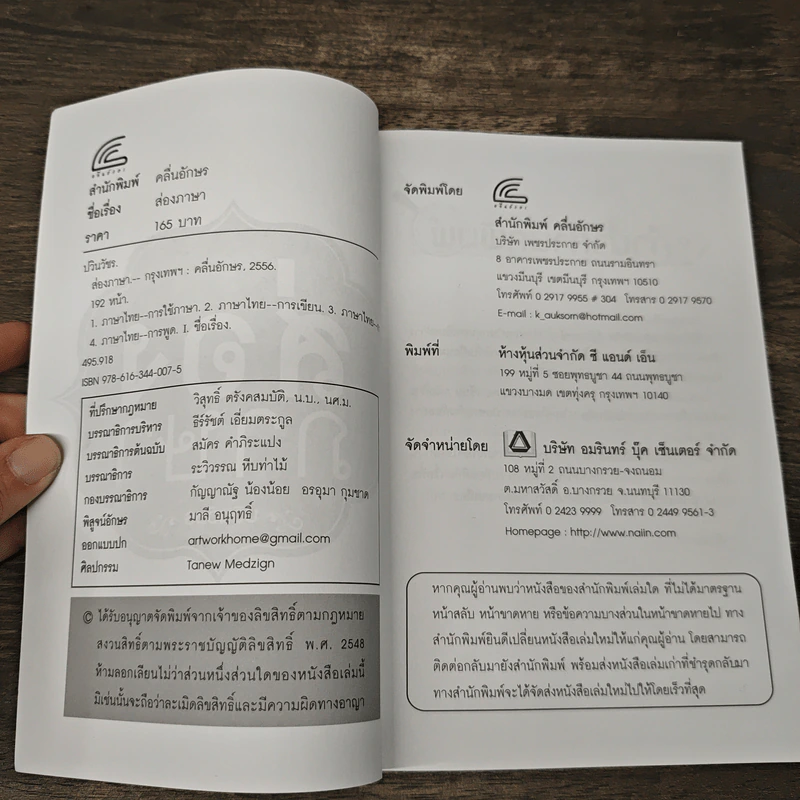 คลื่นอักษร
สำนักพิมพ์ คลื่นอักษร
ชื่อเรื่อง ส่องภาษา
ราคา 165 บาท
ปวินวัชร.
ส่องภาษา.-- กรุงเทพฯ : คลื่นอักษร, 2556.
192 หน้า.
1. ภาษาไทย--การใช้ภาษา. 2. ภาษาไทย--การเขียน. 3. ภาษาไทย--
4. ภาษาไทย--การพูด. I. ชื่อเรื่อง.
495.918
ISBN 978-616-344-007-5
ที่ปรึกษากฎหมาย วิสุทธิ์ ตรังคสมบัติ, น.บ., นศ.ม.
บรรณาธิการบริหาร ธีร์รัชต์ เอี่ยมตระกูล
บรรณาธิการต้นฉบับ สมัคร คำภิระแปง
บรรณาธิการ ระวิวรรณ หีบท่าไม้
กองบรรณาธิการ กัญญาณัฐ น้องน้อย อรอุมา กุมขาด
พิสูจน์อักษร มาลี อนุฤทธิ์
ออกแบบปก artworkhome@gmail.com
ศิลปกรรม Tanew Medzign
© ได้รับอนุญาตจัดพิมพ์จากเจ้าของลิขสิทธิ์ตามกฎหมาย
สงวนสิทธิ์ตามพระราชบัญญัติลิขสิทธิ์ พ.ศ. 2548
ห้ามลอกเลียนไม่ว่าส่วนหนึ่งส่วนใดของหนังสือเล่มนี้
มิเช่นนั้นจะถือว่าละเมิดลิขสิทธิ์และมีความผิดทางอาญา
จัดพิมพ์โดย
คลื่นอักษร
สำนักพิมพ์ คลื่นอักษร
บริษัท เพชรประกาย จำกัด
8 อาคารเพชรประกาย ถนนรามอินทรา
แขวงมีนบุรี เขตมีนบุรี กรุงเทพฯ 10510
โทรศัพท์ 0 2917 9955 # 304 โทรสาร 0 2917 9570
E-mail : k_auksorn@hotmail.com
พิมพ์ที่ ห้างหุ้นส่วนจำกัด ซี แอนด์ เอ็น
199 หมู่ที่ 5 ซอยพุทธบูชา 44 ถนนพุทธบูชา
แขวงบางมด เขตทุ่งครุ กรุงเทพฯ 10140
จัดจำหน่ายโดย บริษัท อมรินทร์ บุ๊ค เซ็นเตอร์ จำกัด
108 หมู่ที่ 2 ถนนบางกรวย-จงถนอม
ต.มหาสวัสดิ์ อ.บางกรวย จ.นนทบุรี 11130
โทรศัพท์ 0 2423 9999 โทรสาร 0 2449 9561-3
Homepage : http://www.naiin.com
หากคุณผู้อ่านพบว่าหนังสือของสำนักพิมพ์เล่มใด ที่ไม่ได้มาตรฐาน
หน้าสลับ หน้าขาดหาย หรือข้อความบางส่วนในหน้าขาดหายไป ทาง
สำนักพิมพ์ยินดีเปลี่ยนหนังสือเล่มใหม่ให้แก่คุณผู้อ่าน โดยสามารถ
ติดต่อกลับมายังสำนักพิมพ์ พร้อมส่งหนังสือเล่มเก่าที่ชำรุดกลับมา
ทางสำนักพิมพ์จะได้จัดส่งหนังสือเล่มใหม่ไปให้โดยเร็วที่สุด